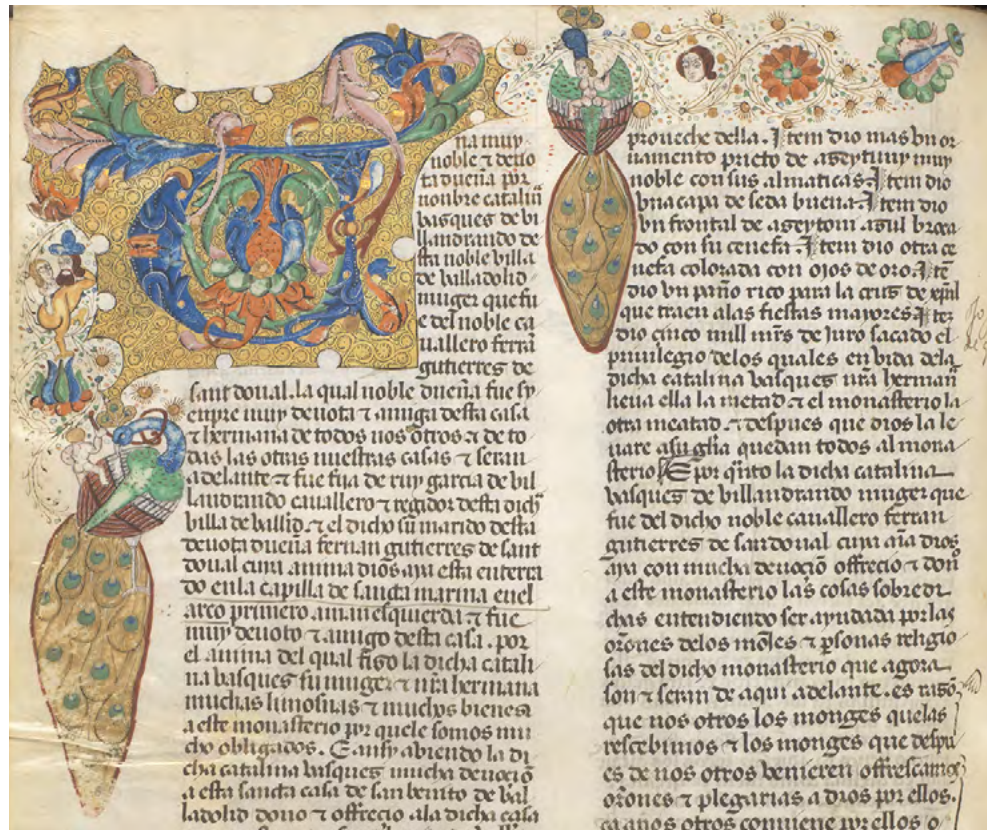 na muy
noble ⁊ deuo
ta dueña por
nonbre catalin̄a
basques de bi
llandrando de
sta noble billa
de balladolid
muger que fu
e del noble ca
uallero ferrā
gutierres de
sant doual. la qual noble dueña fue sy
enpre muy deuota ⁊ amiga desta casa
⁊ hermana de todos nos otros ⁊ de to
das las otras nuestras casas ⁊ seran
adelante ⁊ fue fija de ruy garcia de bil
landrando cauallero ⁊ regidor desta dich̄
billa de ballid̄. ⁊ el dicho sū marido desta
deuota dueña fernan gutierres de sant
doual cuya anima dios aya esta enterra
do enla capilla de sancta marina enel
arco primero a man esquierda ⁊ fue
muy deuoto ⁊ amigo desta casa. por
el anima del qual fiso la dicha catali
na basques su muger ⁊ nr̄a hermana
muchas limosnas ⁊ muchos bienes
a este monasterio por quele somos mu
cho obligados. E ansy abiendo la di
cha catalina basques mucha deuociō
a esta sancta casa de san benito de bal
ladolid dono ⁊ offrecio ala dicha casa
proueche della. Item dio mas vn or
namento prieto de aseytuny muy
noble con sus almaticas. Item dio
vna capa de seda buena. Item dio
vn frontal de aseytoni asul broca
do con su cenefa. Item dio otra ce
nefa colorada con ojos de oro. Itē
dio vn paño rico para la crus de
que traen alas fiestas mayores. Itē
dio çinco mill mr̄s de Juro sacado el
priuilegio delos quales en bida dela
dicha catalina basques nr̄a herman̄
lieua ella la metad ⁊ el monasterio la
otra meatad. ⁊ despues que dios la le
uare asu gl̄ia quedan todos al mona
sterio. E por q̄nto la dicha catalina
basques de billandrando muger que
fue del dicho noble cauallero ferran
gutierres de sandoual cuya aīa dios
aya con mucha deuociō offrecio ⁊ don̄
a este monasterio las cosas sobredi
chas entendiendo ser ayudada por las
or̄ones delos mōjes ⁊ p̄sonas religio
sas del dicho monasterio que agora
son ⁊ seran de aqui adelante. es rasō
que nos otros los monges quelas
rescebimos ⁊ los monges que despu
es de nos otros benieren offrescamos
or̄ones ⁊ plegarias a dios por ellos.
ca a nos otros conuiene por ellos o